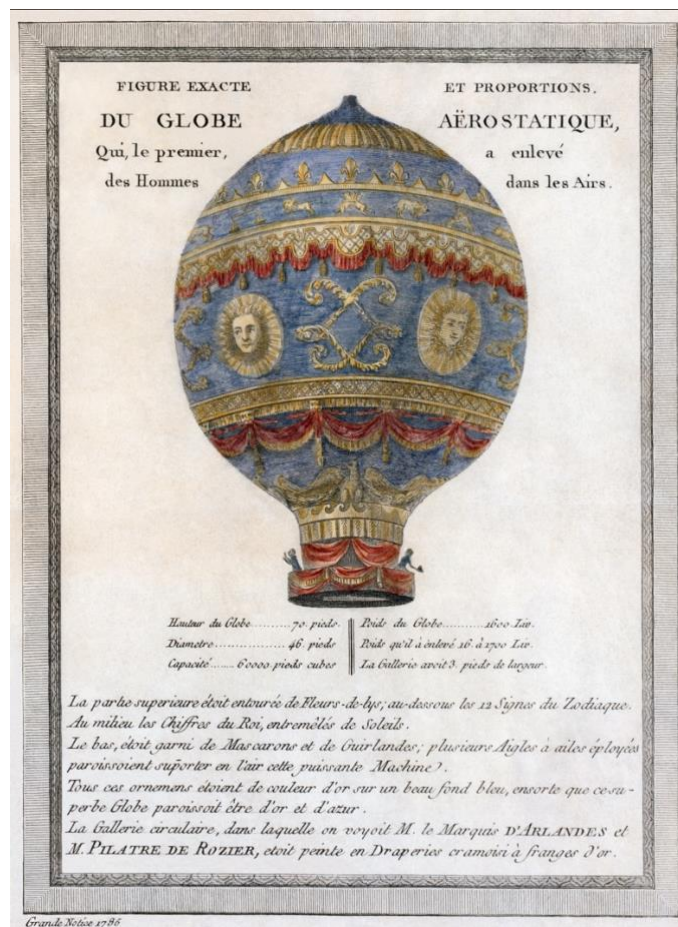 FIGURE EXACTE ET PROPORTIONS.
DU GLOBE AËROSTATIQUE,
Qui, le premier, a enlevé
des Hommes dans les Airs.
Hauteur du Globe..........70. pieds
Diametre..................46. pieds
Capacité......60000 pieds cubes
Poids du Globe..........1600 Liv.
Poids qu'il à enlevé 16. à 1700 Liv.
La Gallerie avoit 3. pieds de largeur.
La partie superieure étoit entourée de Fleurs-de-lys; au-dessous les 12 Signes du Zodiaque.
Au milieu les Chiffres du Roi, entremêlés de Soleils.
Le bas, étoit garni de Mascarons et de Guirlandes; plusieurs Aigles à ailes éployées
paroissoient suporter en l'air cette puissante Machine.
Tous ces ornemens étoient de couleur d'or sur un beau fond bleu, ensorte que ce su-
perbe Globe paroissoit être d'or et d'azur.
La Gallerie circulaire, dans laquelle on voyoit M. le Marquis D'ARLANDES et
M. PILATRE DE ROZIER, etoit peinte en Draperies cramoisi à franges d'or.
Grande Notice 1786